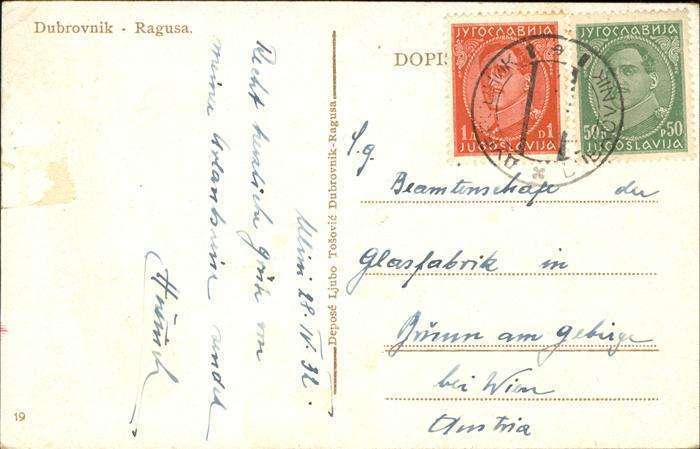 Dubrovnik - Ragusa.
DOPIS
ЈУГОСЛАВИЈА
1 Д D 1
JUGOSLAVIJA
ЈУГОСЛАВИЈА
50 P 50
JUGOSLAVIJA
Mlini 28. IV. 32.
Recht herzliche Grüße von
meiner Urlaubsreise sendet
Deposé Ljubo Tošović Dubrovnik-Ragusa
S.g.
Beamtenschaft der
Glasfabrik in
Brünn am Gebirge
bei Wien
Austria
19